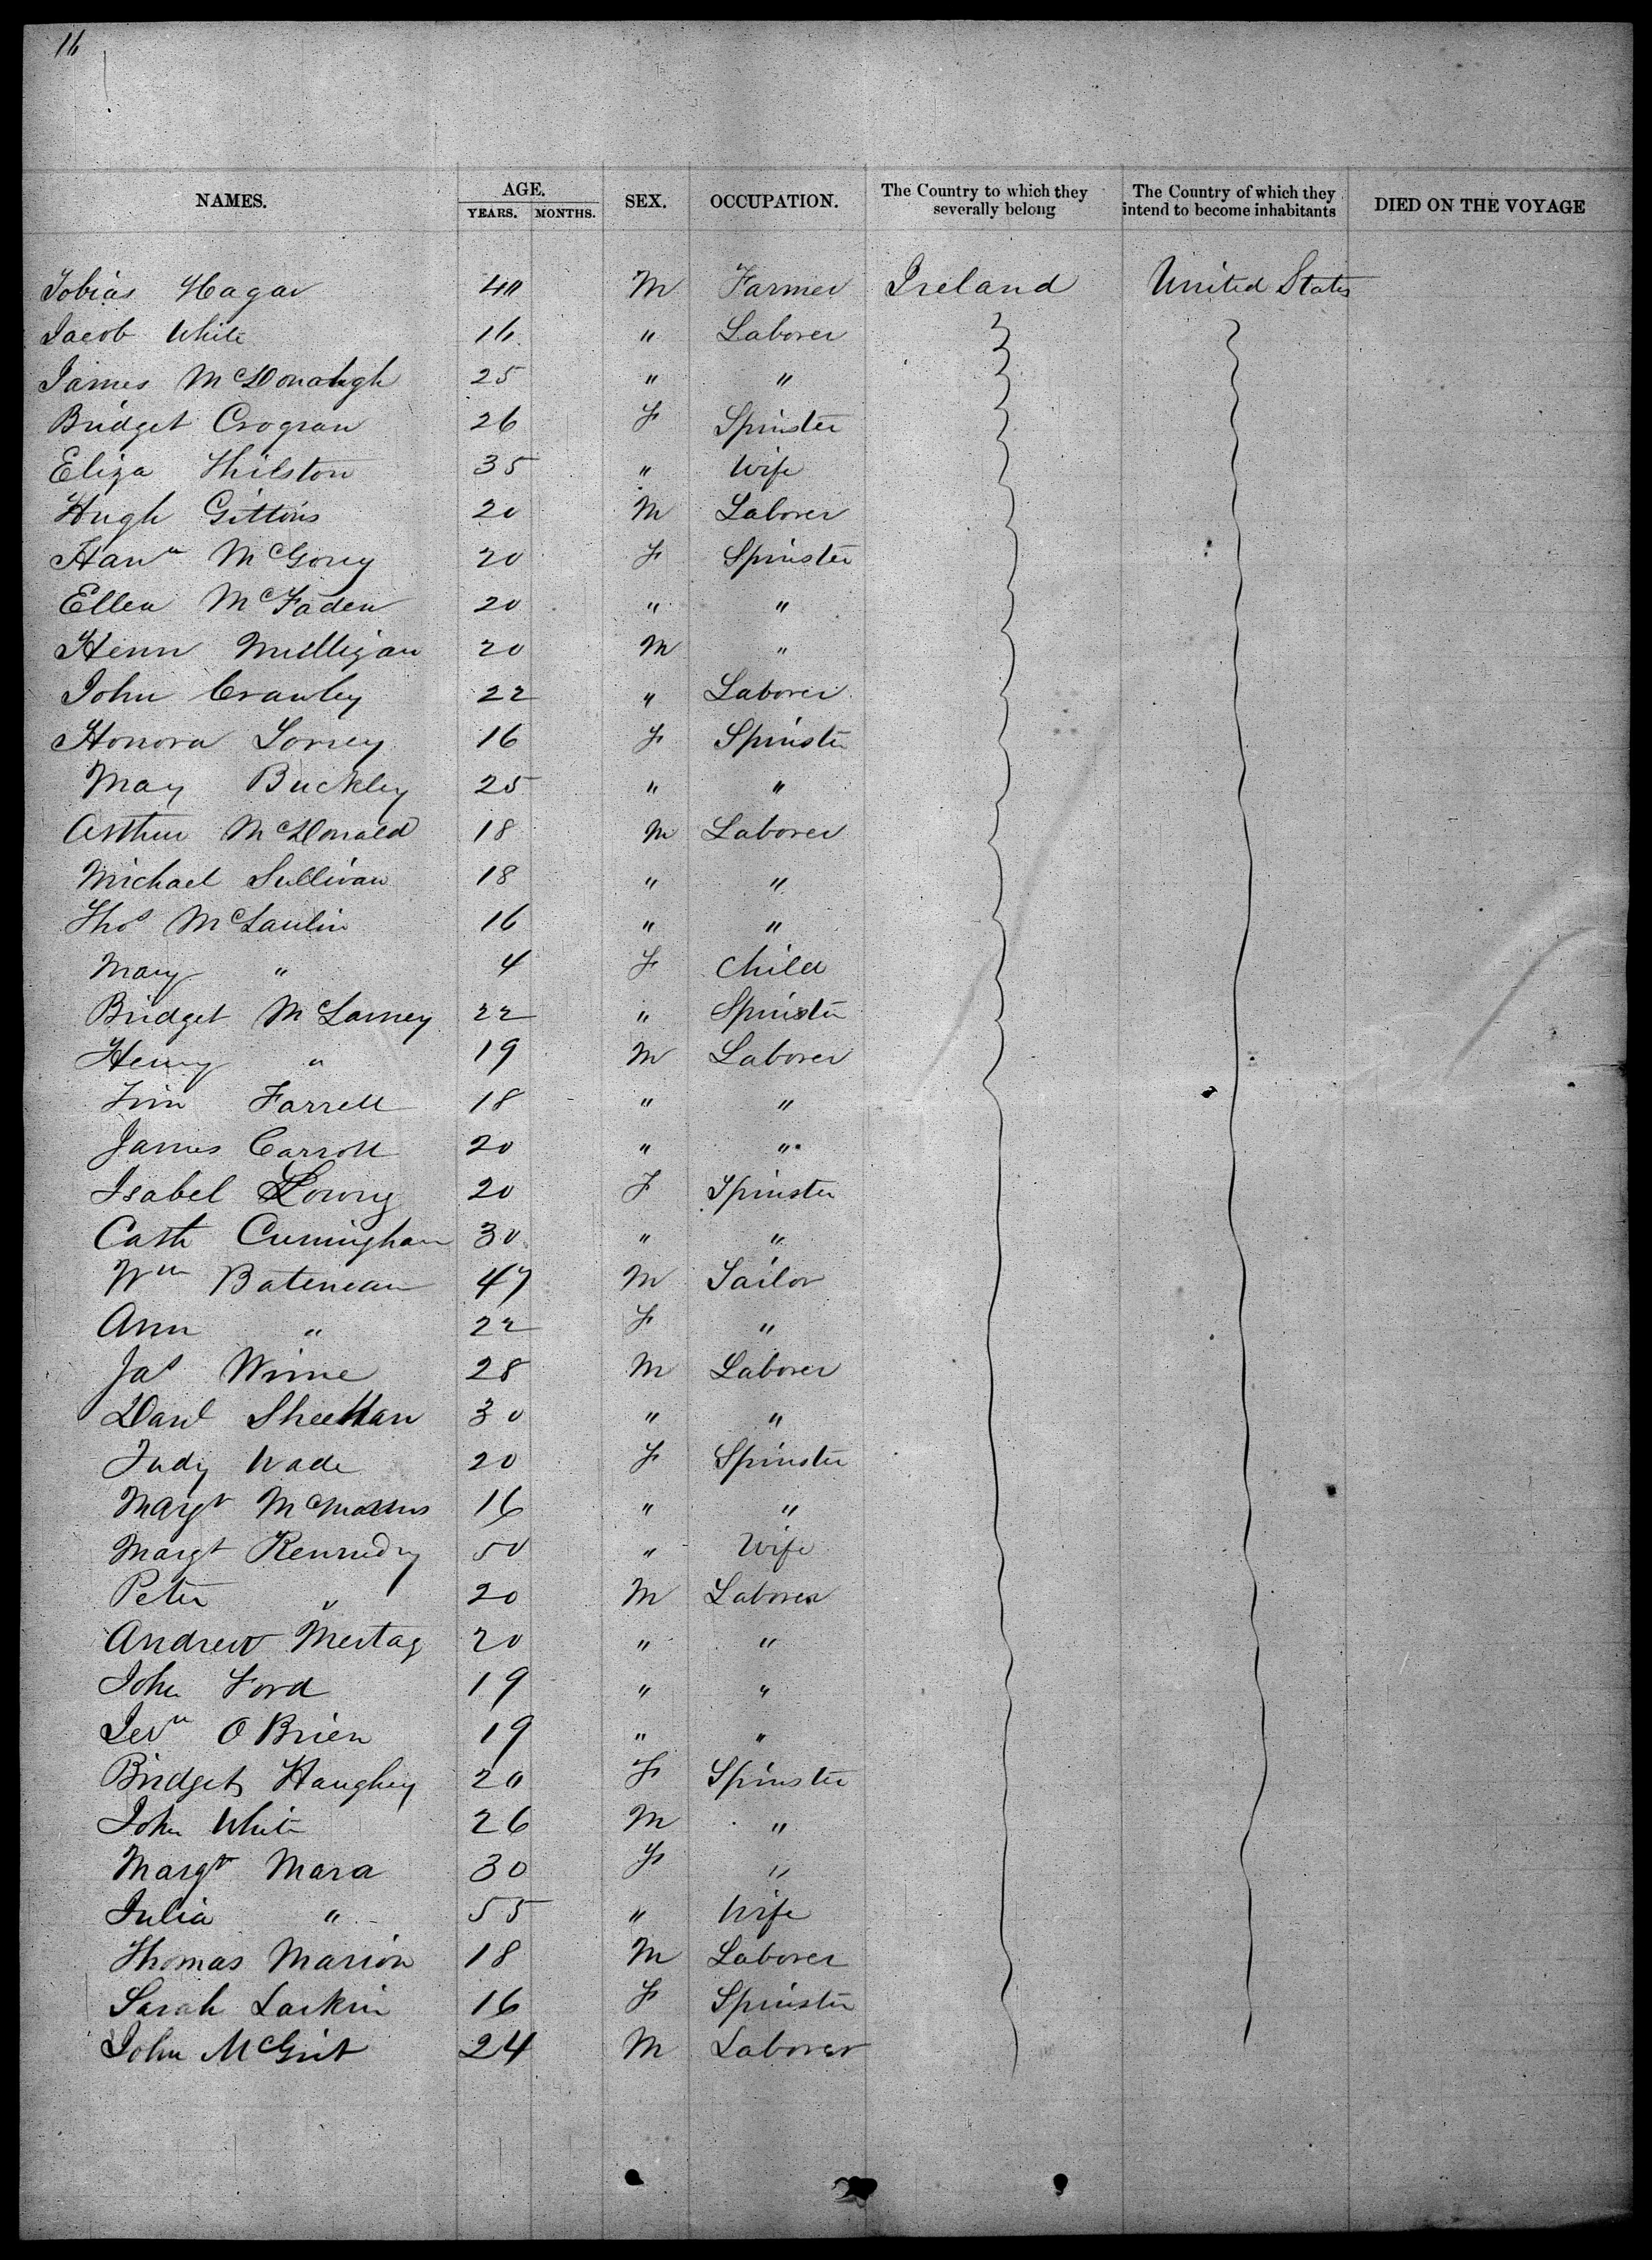 16
NAMES. AGE. YEARS. MONTHS. SEX. OCCUPATION. The Country to which they severally belong The Country of which they intend to become inhabitants DIED ON THE VOYAGE
Tobias Hagar 40 M Farmer Ireland United States
Jacob White 16 " Laborer
James McDonahgh 25 " "
Bridget Crogran 26 F Spinster
Eliza Thilston 35 " Wife
Hugh Gittins 20 M Laborer
Hanh McGorry 20 F Spinster
Ellen McFaden 20 " "
Henn Mulligan 20 M "
John Crawley 22 " Laborer
Honora Torney 16 F Spinster
May Buckley 25 " "
Arthur McDonald 18 M Laborer
Michael Sullivan 18 " "
Thos McLaulin 16 " "
Mary " 4 F Child
Bridget McLarney 22 " Spinster
Henry " 19 M Laborer
Tim Farrell 18 " "
James Carroll 20 " "
Isabel Lowry 20 F Spinster
Cath Cuningham 30 " "
Wm Bateman 47 M Tailor
Ann " 22 F "
Jas Winne 28 M Laborer
Danl Sheehan 30 " "
Judy Wade 20 F Spinster
Margt 16 " "
Margt Kennedy 50 " Wife
Peter " 20 M Laborer
Andrew Mertag 20 " "
John Ford 19 " "
Jerh O Brien 19 " "
Bridget Haughey 20 F Spinster
John White 26 M "
Margt Mara 30 F "
Julia " 55 " Wife
Thomas Marion 18 M Laborer
Sarah Larkin 16 F Spinster
John McGirt 24 M Laborer